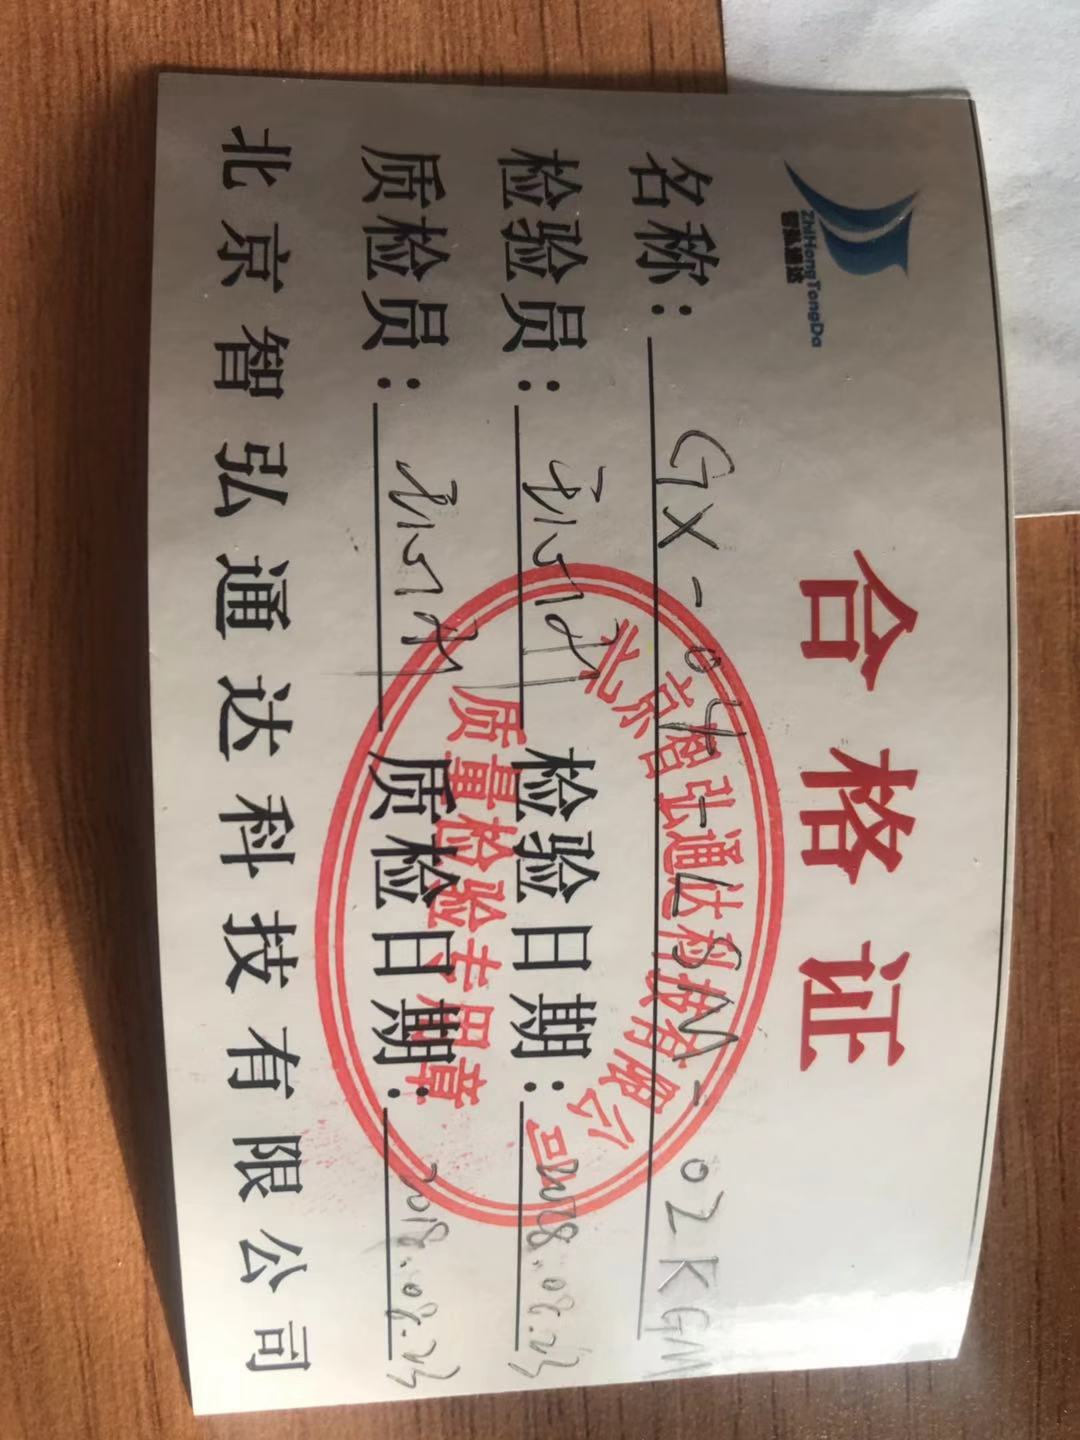 智弘通达
ZhiHongTongDa
合格证
名称：GX-04-LSM-02KGM
检验员： 检验日期：2018.08.23
质检员： 质检日期：2018.08.23
北京智弘通达科技有限公司
北京智弘通达科技有限公司
质量检验专用章